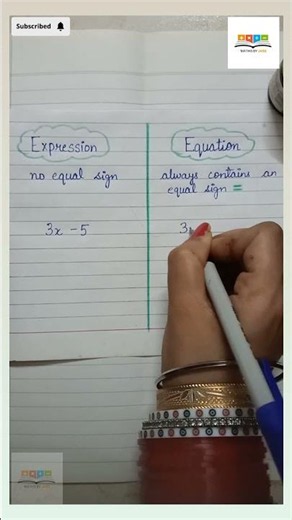 Subscribed
Expression
no equal sign
3x - 5
Equation
always contains an
equal sign =
3